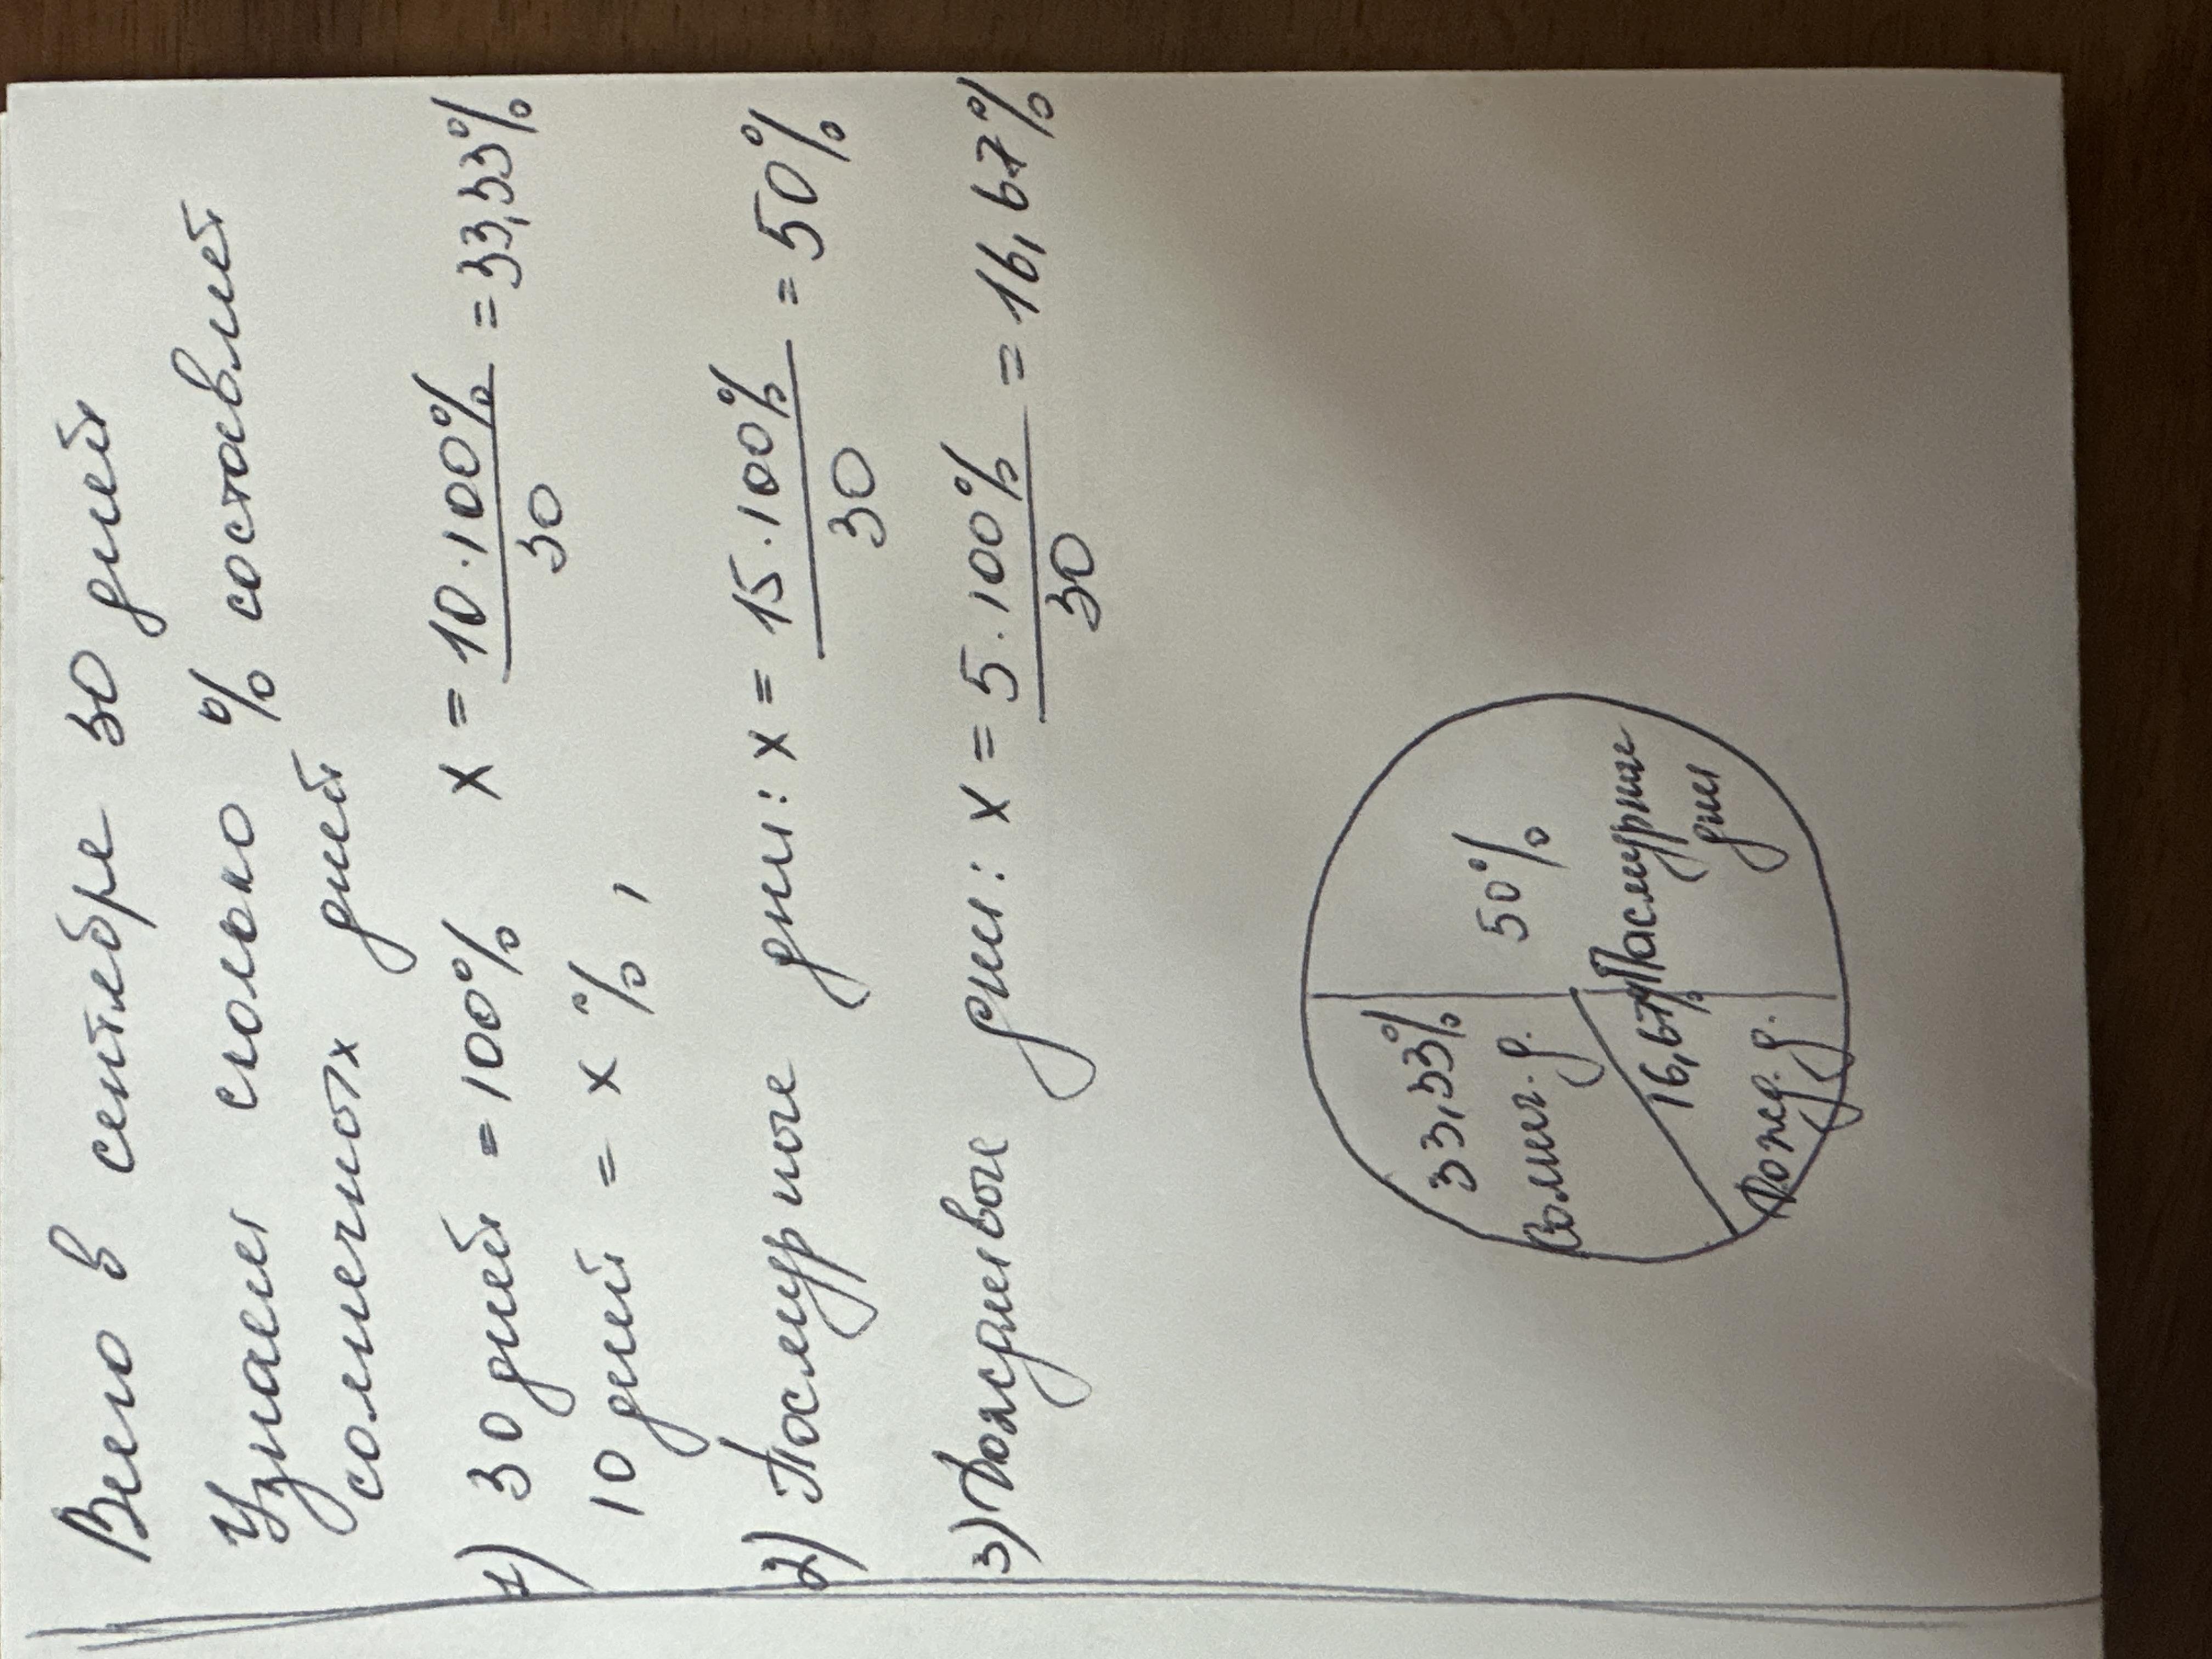 Всего в сентябре 30 дней
Узнаем сколько % составляет
солнечных дней
1) 30 дней = 100% x = 10·100% / 30 = 33,33%
10 дней = x %,
2) Пасмурные дни: x = 15·100% / 30 = 50%
3) Дождливые дни: x = 5·100% / 30 = 16,67%
33,33%
Солнеч. д.
50%
Пасмурные
дни
16,67%
Дожд. д.